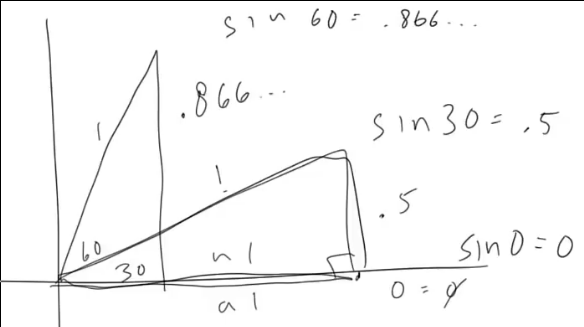 sin 60 = .866...
1
.866...
sin 30 = .5
1
.5
60
30
n 1
sin 0 = 0
a 1
0 = 0